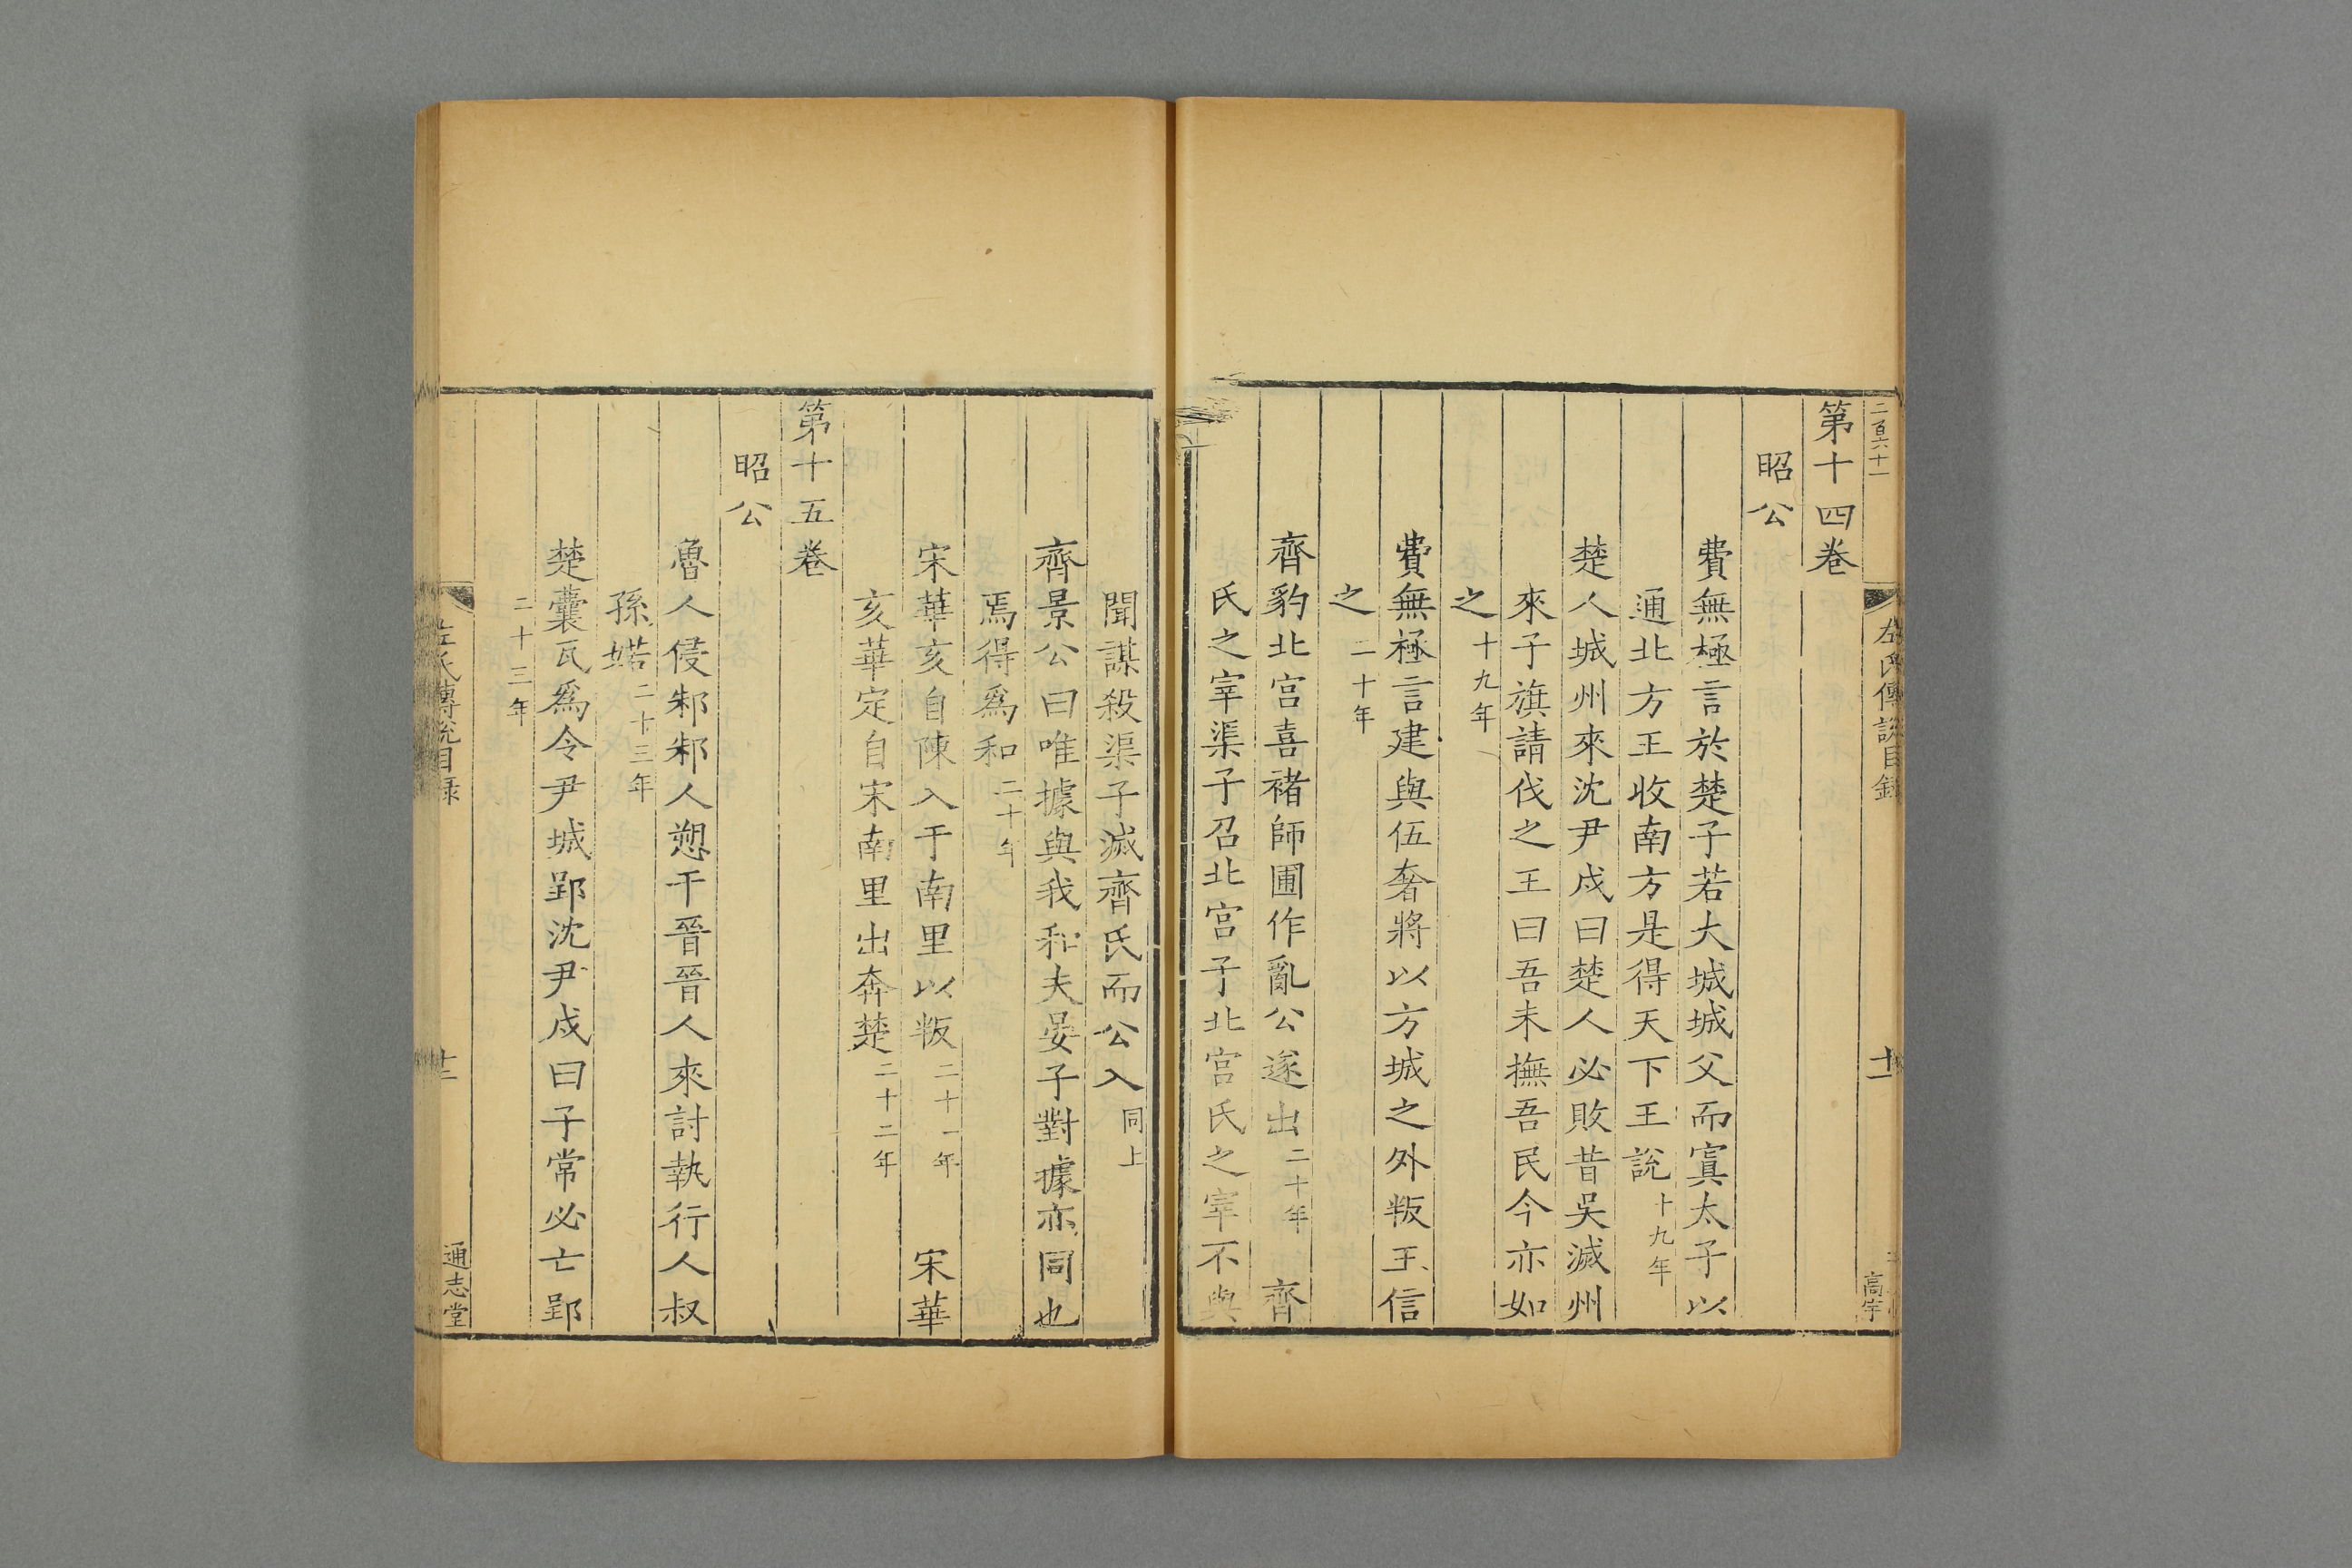 二百六十一
左氏傳說目錄
十一
第十四卷
昭公
費無極言於楚子若大城城父而寘太子以
通北方王收南方是得天下王說十九年
楚人城州來沈尹戌曰楚人必敗昔吳滅州
來子旗請伐之王曰吾未撫吾民今亦如
之十九年
費無極言建與伍奢將以方城之外叛王信
之二十年
齊豹北宮喜褚師圃作亂公遂出二十年 齊
氏之宰渠子召北宮子北宮氏之宰不與
聞謀殺渠子滅齊氏而公入同上
齊景公曰唯據與我和夫晏子對據亦同也
焉得爲和二十年
宋華亥自陳入于南里以叛二十一年 宋華
亥華定自宋南里出奔楚二十二年
第十五卷
昭公
魯人侵邾邾人愬于晉晉人來討執行人叔
孫婼二十三年
楚囊瓦爲令尹城郢沈尹戌曰子常必亡郢
二十三年
左氏傳說目錄
十二
通志堂